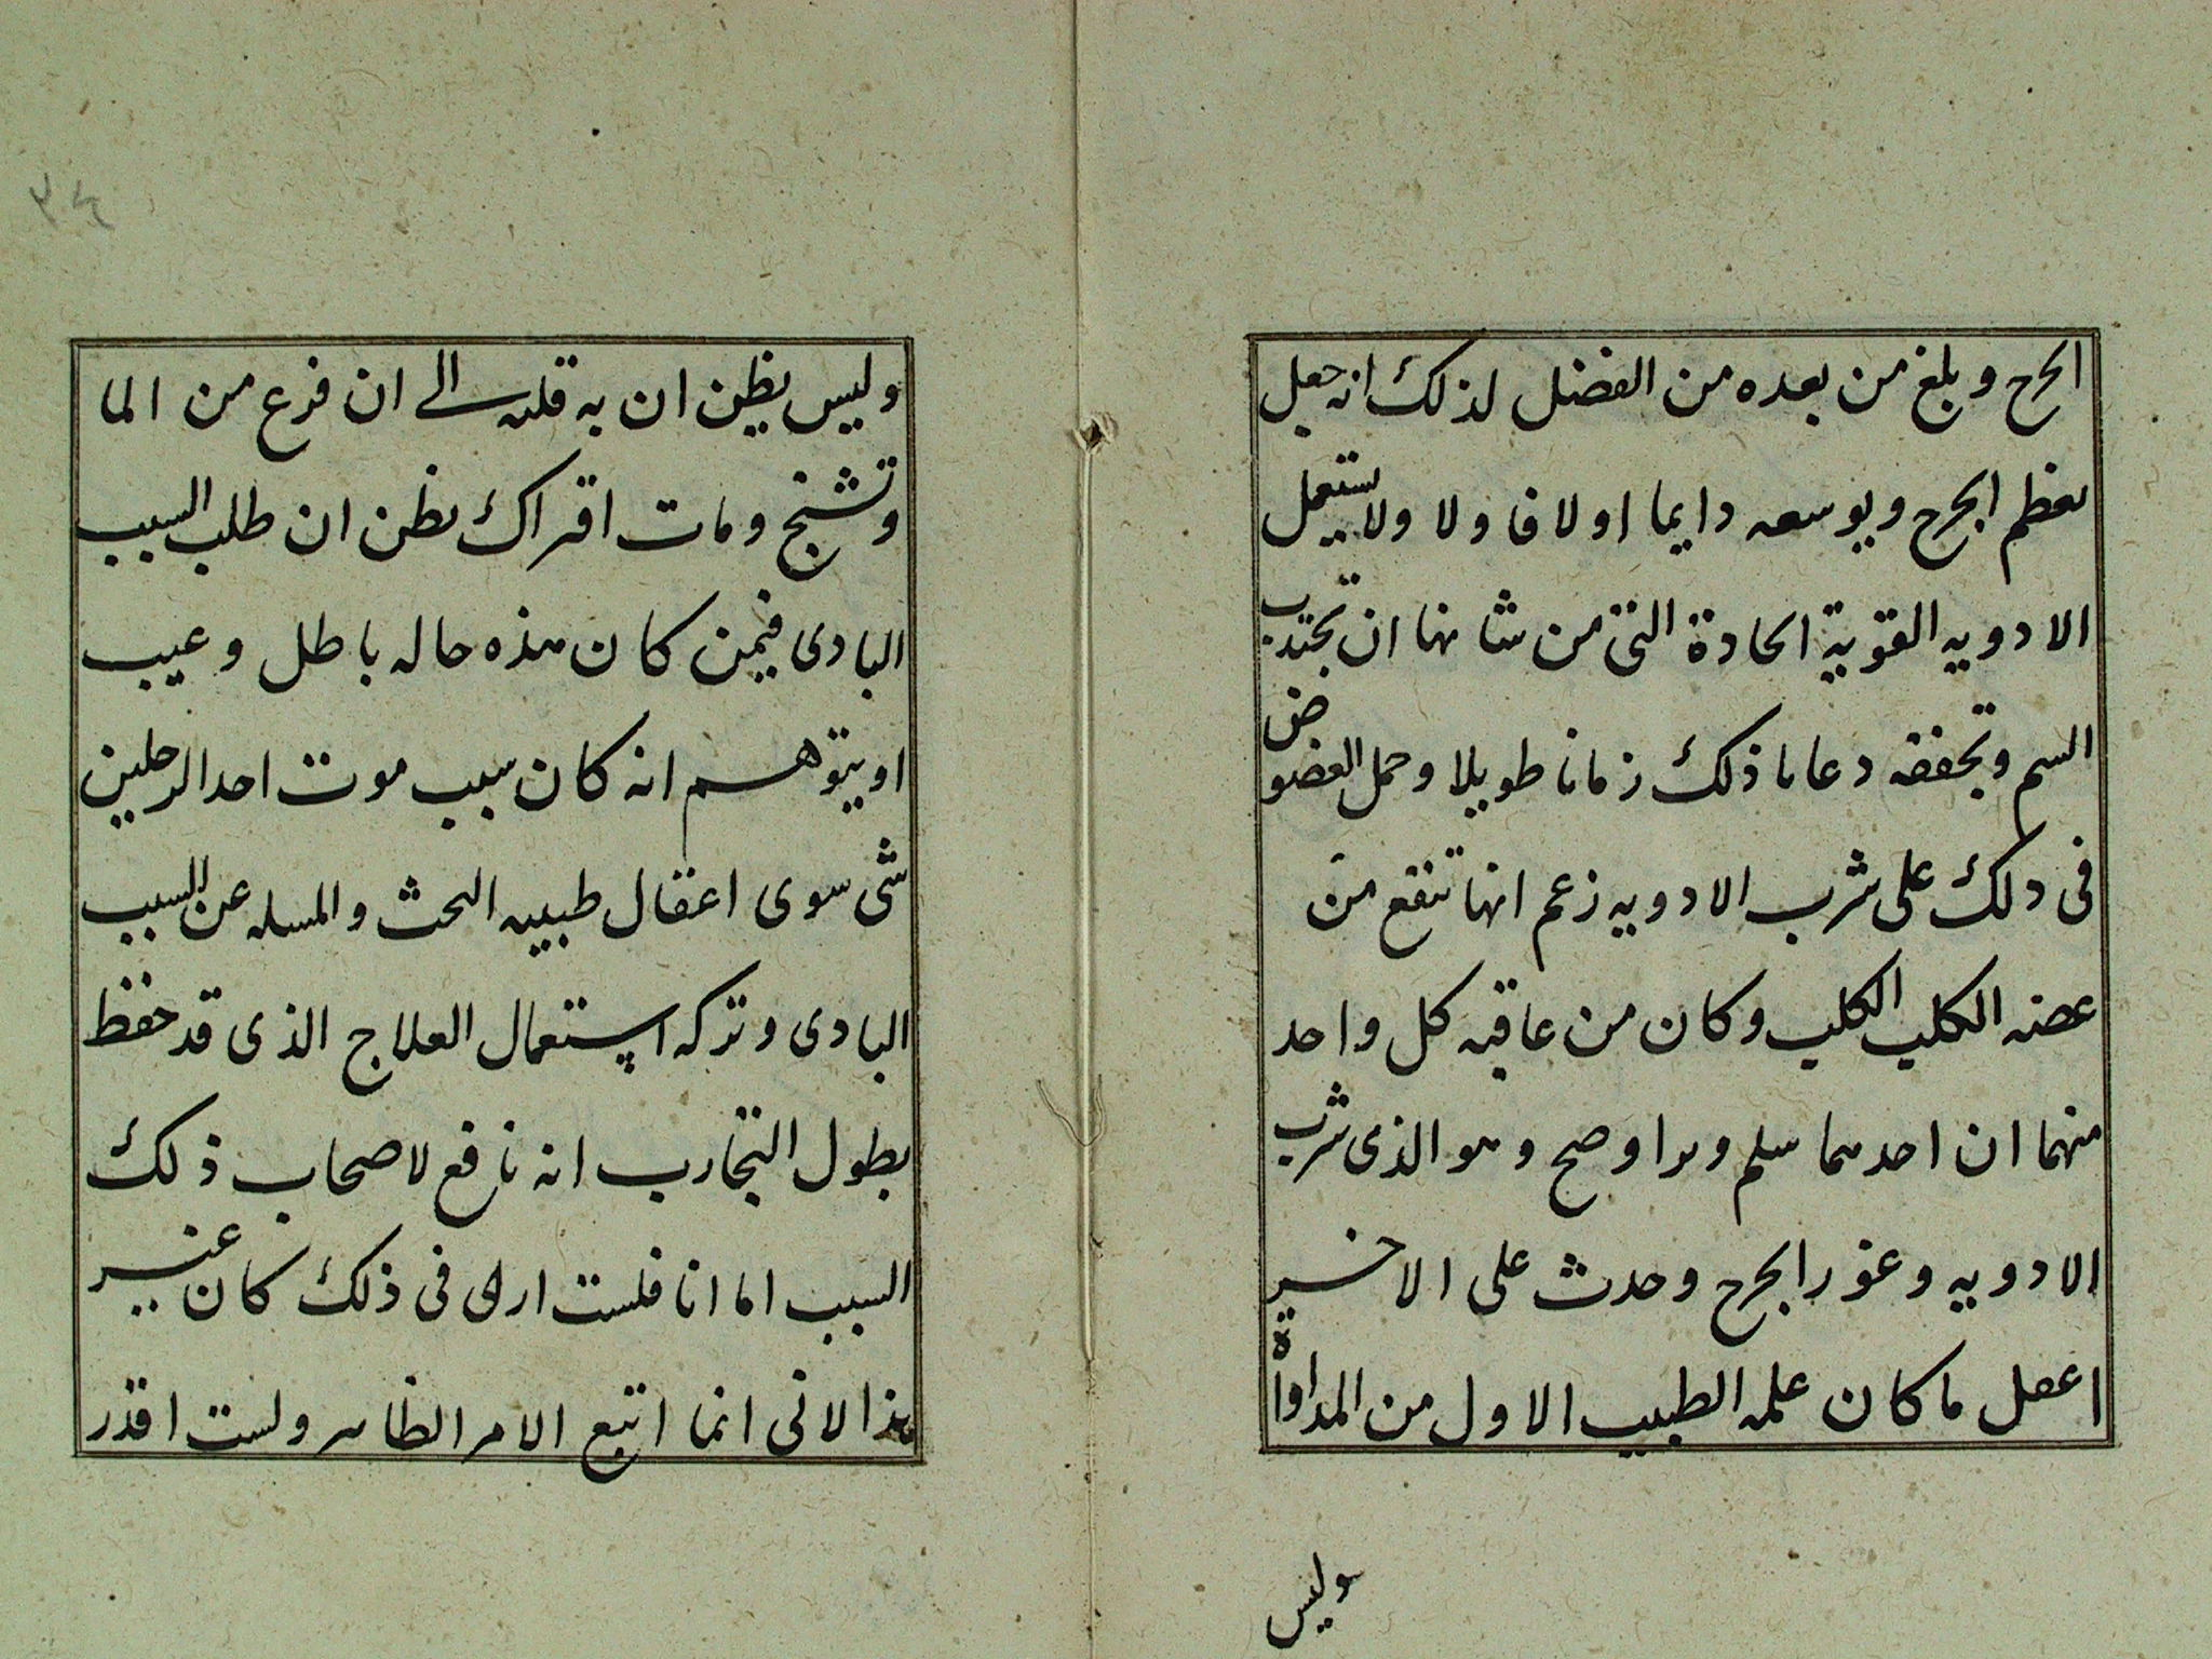 الجرح وبلغ من بعده من الفضل لذلك انه جعل
يعظم الجرح ويوسعه دايما اولا فاولا ولا يستعمل
الادويه القوية الحادة التى من شانها ان تجتذب
السم وتجففه دعاما ذلك زمانا طويلا وحمل العضو ض
فى ذلك على شرب الادويه زعم انها تنفع من
عضه الكلب الكلب وكان من عاقبه كل واحد
منهما ان احدهما سلم وبرا وصح وهو الذى شرب
الادويه وغور الجرح وحدث على الاخير
اعفل ما كان علمه الطبيب الاول من المداواة
وليس
وليس يظن ان به قلبه الى ان فزع من الما
وتشنج ومات افتراك يظن ان طلب السبب
البادى فيمن كان هذه حاله باطل وعيب
او يتوهم انه كان سبب موت احد الرجلين
شى سوى اعفال طبيبه البحث والمسله عن السبب
البادى وتركه استعمال العلاج الذى قد حفظ
بطول التجارب انه نافع لاصحاب ذلك
السبب اما انا فلست ارى فى ذلك كان غير
هذا لانى انما اتبع الامر الظاهر ولست اقدر